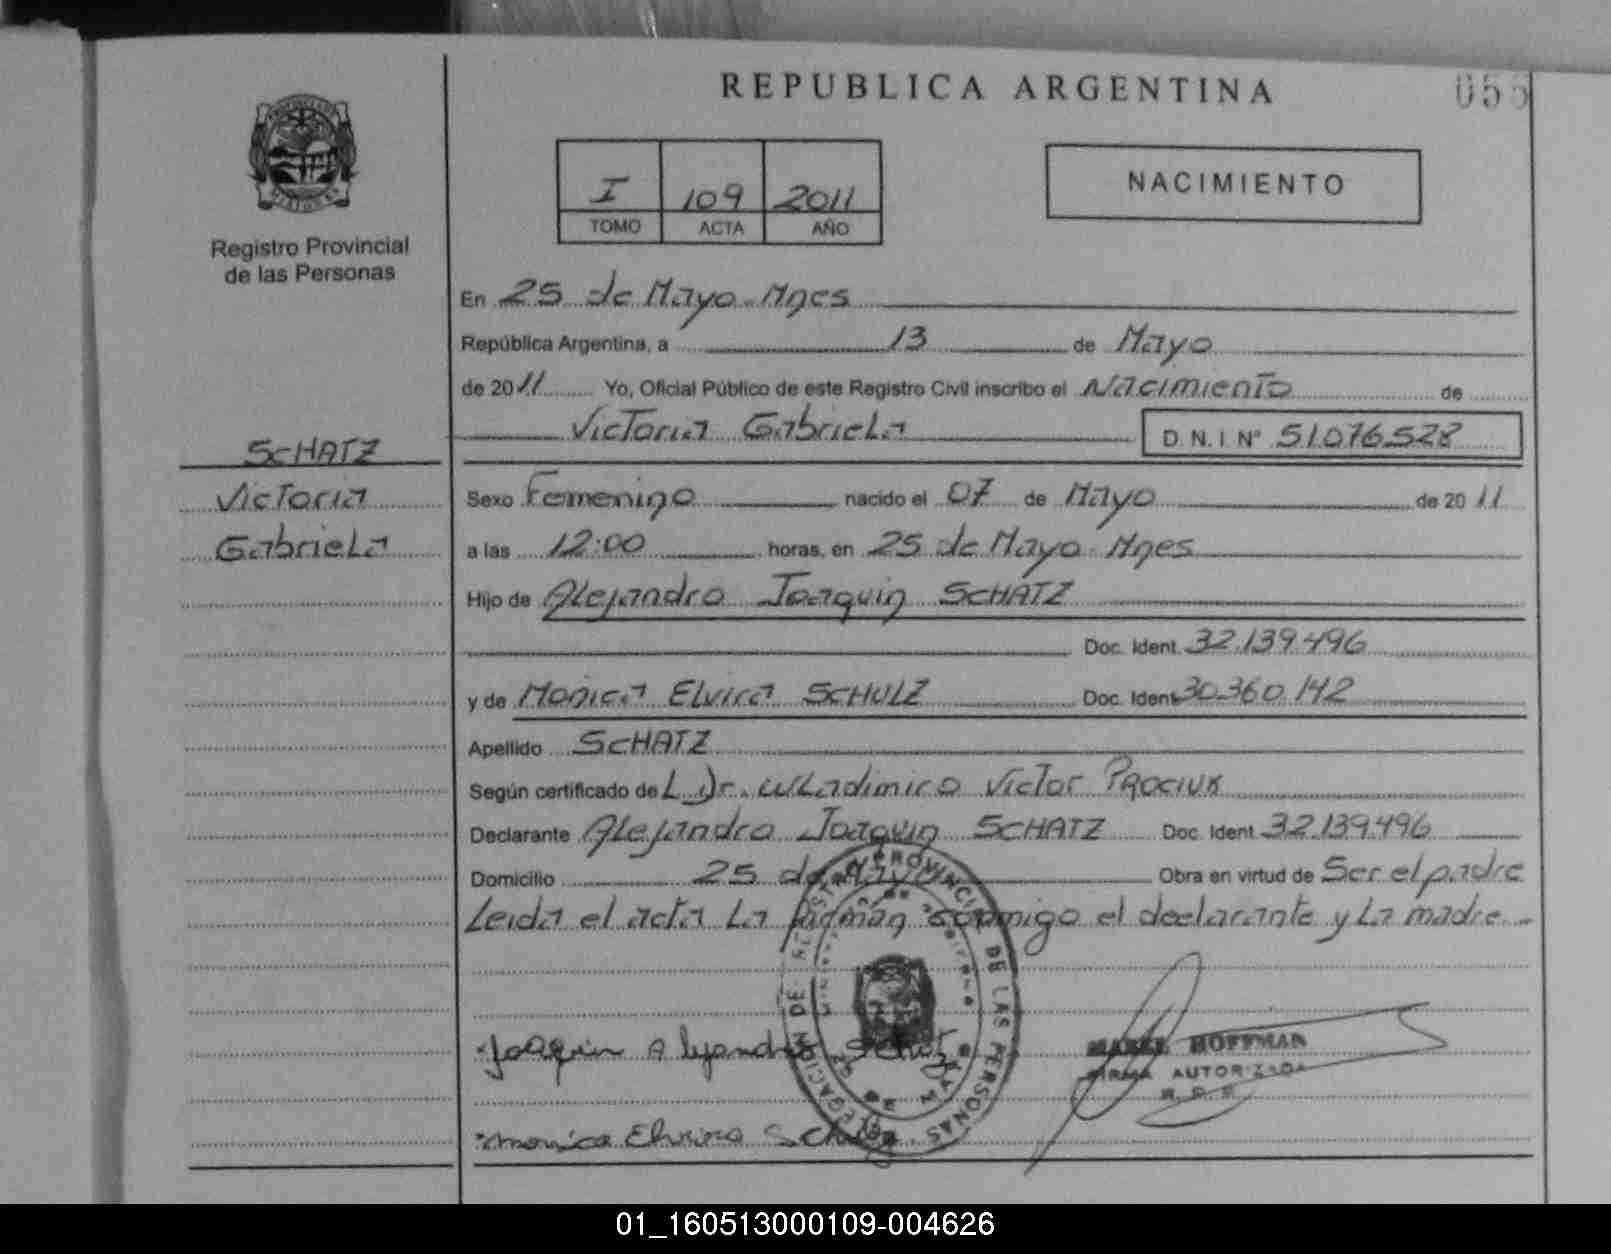 REPUBLICA ARGENTINA
055
I 109 2011
TOMO ACTA AÑO
NACIMIENTO
Registro Provincial
de las Personas
SCHATZ
Victoria
Gabriela
En 25 de Mayo - Mnes
República Argentina, a 13 de Mayo
de 2011 Yo, Oficial Público de este Registro Civil inscribo el Nacimiento de
Victoria Gabriela D. N. I. N° 51.076.528
Sexo Femenino nacido el 07 de Mayo de 2011
a las 12:00 horas, en 25 de Mayo - Mnes
Hijo de Alejandro Joaquin SCHATZ
Doc. Ident. 32.139.496
y de Monica Elvira SCHULZ Doc. Ident. 30.360.142
Apellido SCHATZ
Según certificado del Dr. Wladimiro Victor PROCIUK
Declarante Alejandro Joaquin SCHATZ Doc. Ident. 32.139.496
Domicilio 25 de Mayo Obra en virtud de Ser el padre
Leida el acta La firman conmigo el declarante y La madre.-
DELEGACION DE REGISTRO PROVINCIAL DE LAS PERSONAS
25 DE MAYO
Joaquin Alejandro Schatz
MABEL HOFFMAN
FIRMA AUTORIZADA
R. P. P.
Monica Elvira Schulz
01_160513000109-004626